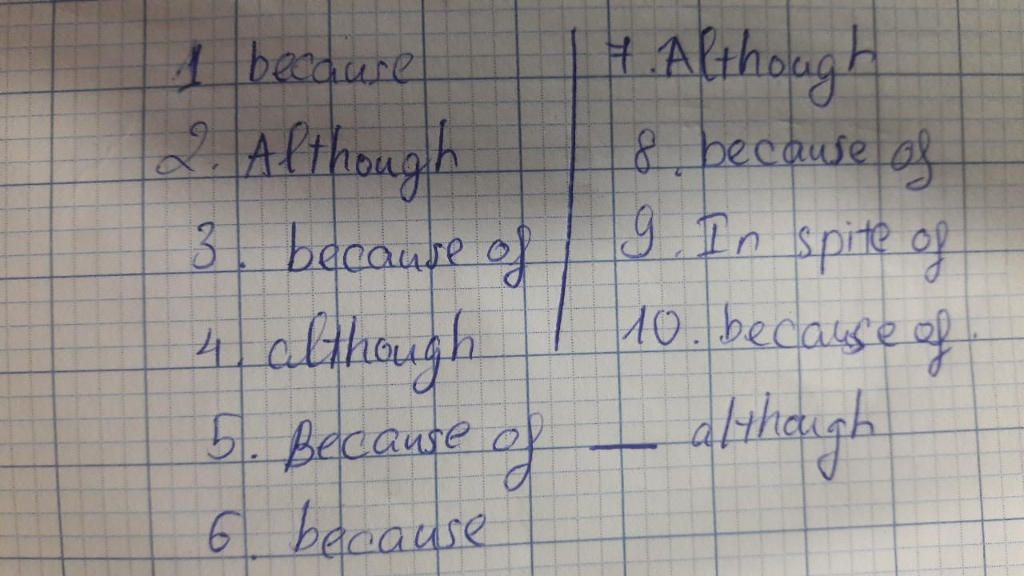 1 because
2. Although
3. because of
4. although
5. Because of — although
6. because
7. Although
8. because of
9. In spite of
10. because of.